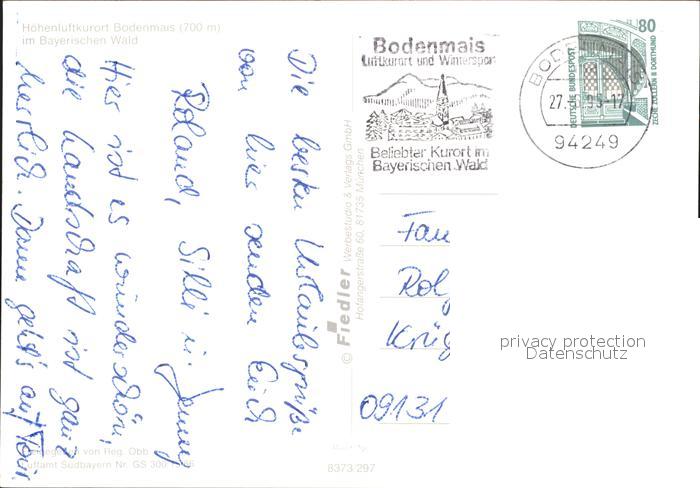 Höhenluftkurort Bodenmais (700 m)
im Bayerischen Wald
Die besten Urlaubsgrüße
von hier senden Euch
Roland, Silke u. Jenny
Hier ist es wunderschön,
die Landschaft ist ganz
herrlich. Dann geht's auf Tour.
Freigegeben von Reg. Obb.
Luftamt Südbayern Nr. GS 300
© Fiedler Werbestudio & Verlags GmbH
Hofangerstraße 60, 81735 München
8373/297
Bodenmais
Luftkurort und Wintersport
Beliebter Kurort im
Bayerischen Wald
94249
80
DEUTSCHE BUNDESPOST
ZECHE ZOLLERN II DORTMUND
Fam
Rol
Krüg
09131
privacy protection
Datenschutz